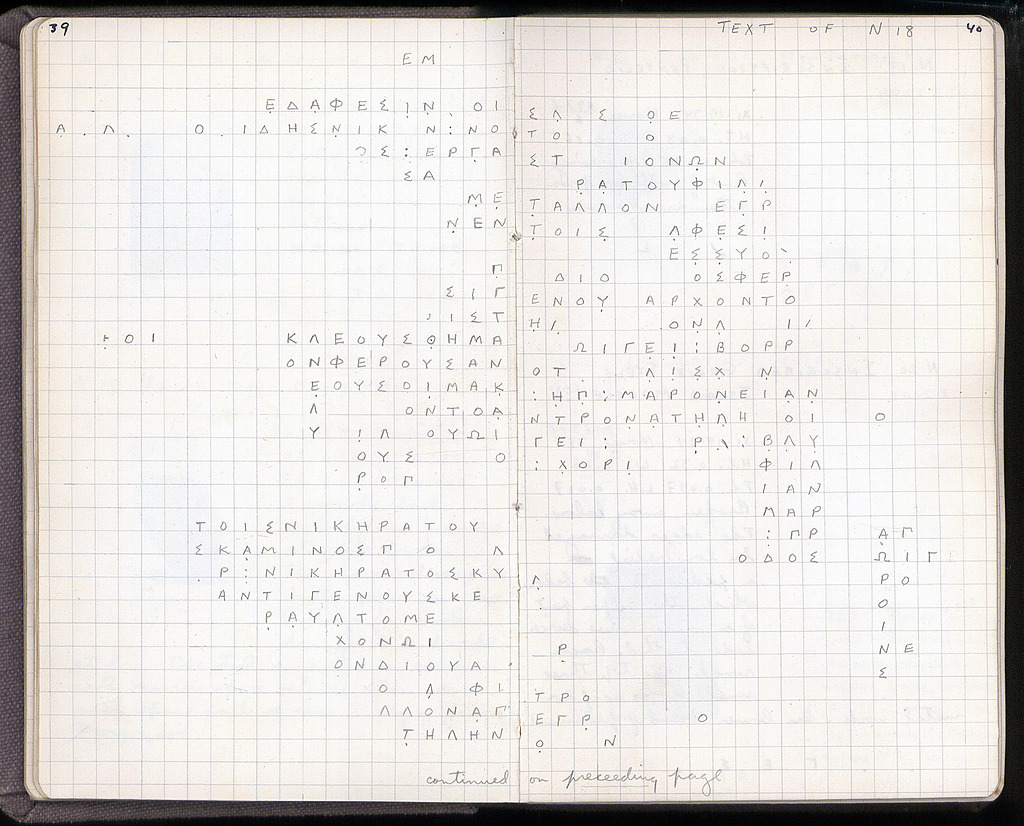 39
ΕΜ
ΕΔΑΦΕΣΙΝ ΟΙ
Α . Λ . Ο . ΙΔΗΣΝΙΚ Ν:ΝΟ
Σ:ΕΡΓΑ
ΣΑ
ΜΕ
ΝΕΝ
Π
ΣΙΓ
ΙΣΤ
ΟΙ ΚΛΕΟΥΣΘΗΜΑ
ΟΝΦΕΡΟΥΣΑΝ
ΕΟΥΣΟΙΜΑΚ
Λ ΟΝΤΟΑ
Υ ΙΛ ΟΥΩΙ
ΟΥΣ Ο
ΡΟΓ
ΤΟΙΣΝΙΚΗΡΑΤΟΥ
ΣΚΑΜΙΝΟΣΓ Ο Λ
Ρ:ΝΙΚΗΡΑΤΟΣΚΥ
ΑΝΤΙΓΕΝΟΥΣΚΕ
ΡΑΥΛΤΟΜΕ
ΧΟΝΩΙ
ΟΝΔΙΟΥΑ
Ο Λ ΦΙ
ΛΛΟΝΑΓ
ΤΗΛΗΝ
TEXT OF N 18 40
ΣΛ Σ ΟΕ
ΤΟ Ο
ΣΤ ΙΟΝΩΝ
ΡΑΤΟΥΦΙΛΙ
ΤΑΛΛΟΝ ΕΓΡ
ΤΟΙΣ ΛΦΕΣΙ
ΕΣΣΥΟ
ΔΙΟ ΟΣΦΕΡ
ΕΝΟΥ ΑΡΧΟΝΤΟ
ΗΙ ΟΝΛ Ι
ΩΙΓΕΙ:ΒΟΡΡ
ΟΤ ΛΙΣΧ Ν
:ΗΓ:ΜΑΡΟΝΕΙΑΝ
ΝΤΡΟΝΑΤΗΛΗ ΟΙ Ο
ΓΕΙ: ΡΛ:ΒΛΥ
:ΧΟΡΙ ΦΙΛ
ΙΑΝ
ΜΑΡ
:ΓΡ ΑΓ
ΟΔΟΣ ΩΙΓ
Λ ΡΟ
Ο
Ι
Ρ ΝΕ
Σ
ΤΡΟ
ΕΓΡ Ο
Ο Ν
continued on preceeding page